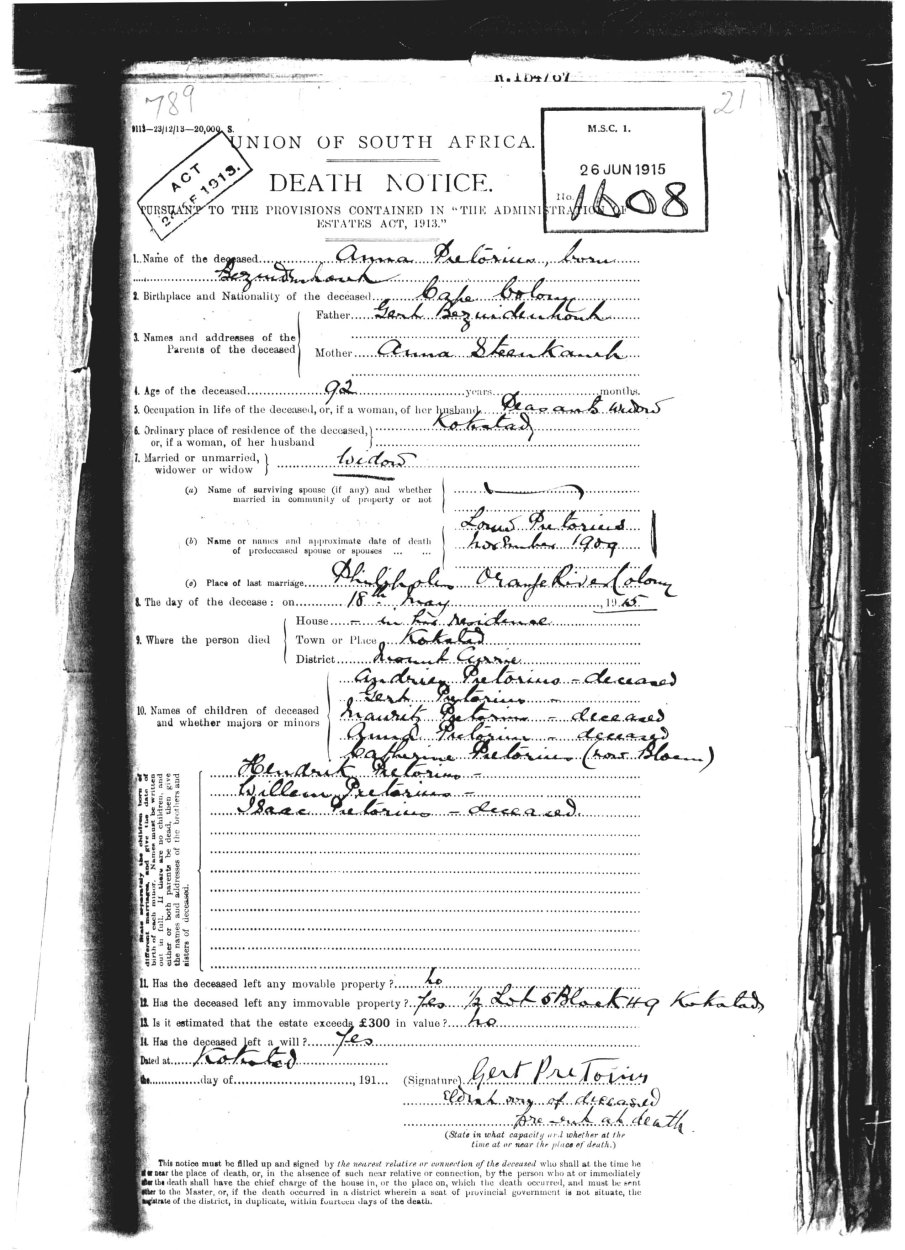 789
21
9113—23/12/13—20,000. S.
ACT
24 OF 1913.
UNION OF SOUTH AFRICA.
M.S.C. 1.
26 JUN 1915
No. 1608
DEATH NOTICE.
PURSUANT TO THE PROVISIONS CONTAINED IN "THE ADMINISTRATION OF
ESTATES ACT, 1913."
1. Name of the deceased Anna Pretorius, born
Bezuidenhout
2. Birthplace and Nationality of the deceased Cape Colony
3. Names and addresses of the Parents of the deceased
Father Gert Bezuidenhout
Mother Anna Steenkamp
4. Age of the deceased 92 years months.
5. Occupation in life of the deceased, or, if a woman, of her husband Peasant's widow
6. Ordinary place of residence of the deceased, or, if a woman, of her husband Kokstad
7. Married or unmarried, widower or widow Widow
(a) Name of surviving spouse (if any) and whether
married in community of property or not
(b) Name or names and approximate date of death
of predeceased spouse or spouses ... ...
Pretorius
November 1909
(c) Place of last marriage Philippolis Orange River Colony
8. The day of the decease: on 18th May, 1915.
9. Where the person died
House – in residence
Town or Place Kokstad
District Mount Currie
10. Names of children of deceased
and whether majors or minors
Andries Pretorius – deceased
Gert Pretorius –
Maurits Pretorius – deceased
Anna Pretorius – deceased
Catherine Pretorius (now Bloem)
Hendrik Pretorius –
Willem Pretorius –
Isaac Pretorius – deceased.
State separately the children born of
different marriages, and give the date of
birth of each minor. Names must be written
out in full. If there are no children, and
either or both parents be dead, then give
the names and addresses of the brothers and
sisters of deceased.
11. Has the deceased left any movable property? No
12. Has the deceased left any immovable property? Yes ½ Lot 5 Block 49 Kokstad
13. Is it estimated that the estate exceeds £300 in value? No
14. Has the deceased left a will? Yes
Dated at Kokstad
the day of , 191
(Signature) Gert Pretorius
Eldest son of deceased
present at death
(State in what capacity and whether at the
time at or near the place of death.)
This notice must be filled up and signed by the nearest relative or connection of the deceased who shall at the time be
at or near the place of death, or, in the absence of such near relative or connection, by the person who at or immediately
after the death shall have the chief charge of the house in, or the place on, which the death occurred, and must be sent
either to the Master, or, if the death occurred in a district wherein a seat of provincial government is not situate, the
magistrate of the district, in duplicate, within fourteen days of the death.